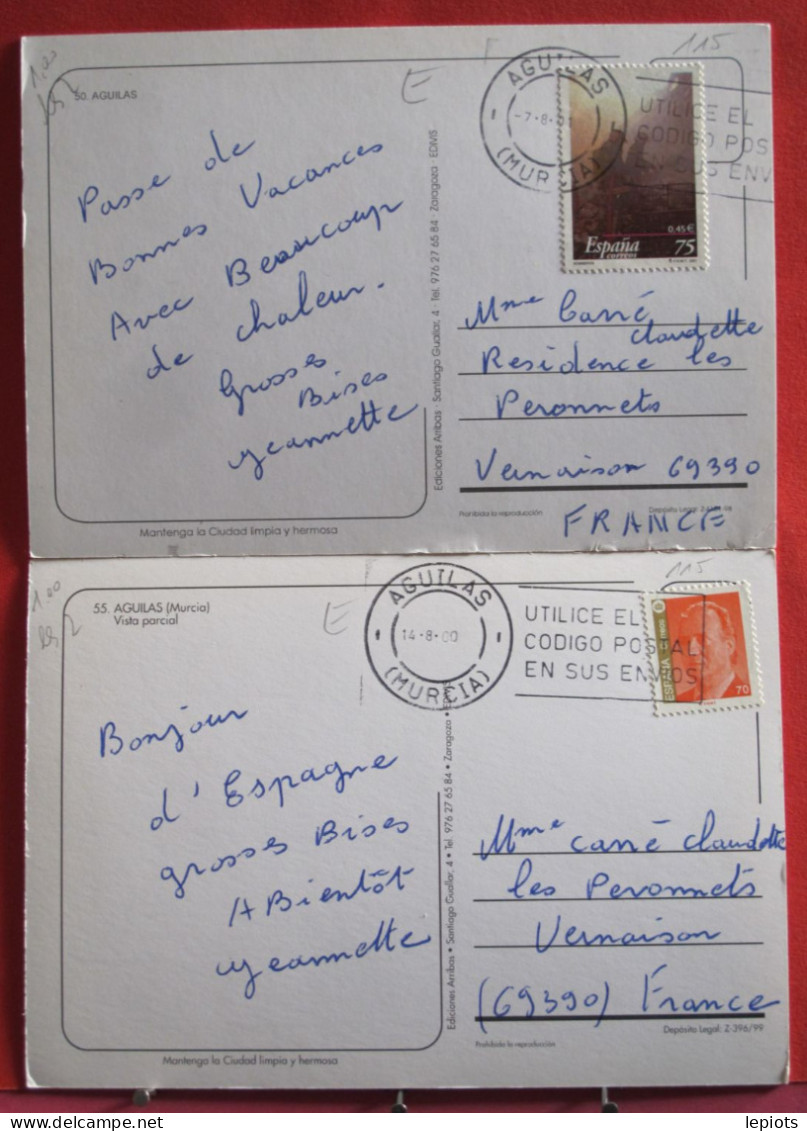 115
1,00
50. AGUILAS
E
AGUILAS
-7-8-01
(MURCIA)
UTILICE EL
CODIGO POS
EN SUS ENV
0,45€
España
correos
75
Passe de
Bonnes Vacances
Avec Beaucoup
de chaleur.
Grosses
Bises
Jeannette
Ediciones Arribas · Santiago Guallar, 4 · Tel. 976 27 65 84 · Zaragoza EDIVIS
Mme Carré
claudette
Residence les
Peronnets
Vernaison 69390
Prohibida la reproducción
Depósito Legal:
FRANCE
Mantenga la Ciudad limpia y hermosa
115
1,00
55. AGUILAS (Murcia)
Vista parcial
E
AGUILAS
14-8-00
(MURCIA)
UTILICE EL
CODIGO POSTAL
EN SUS ENVIOS
ESPAÑA
70
Bonjour
d'Espagne
grosses Bises
A Bientôt
Jeannette
Ediciones Arribas • Santiago Guallar, 4 • Tel. 976 27 65 84 • Zaragoza • EDIVIS
Mme carré claudette
les Peronnets
Vernaison
(69390) France
Depósito Legal: Z-396/99
Prohibida la reproducción
Mantenga la Ciudad limpia y hermosa
lepiots